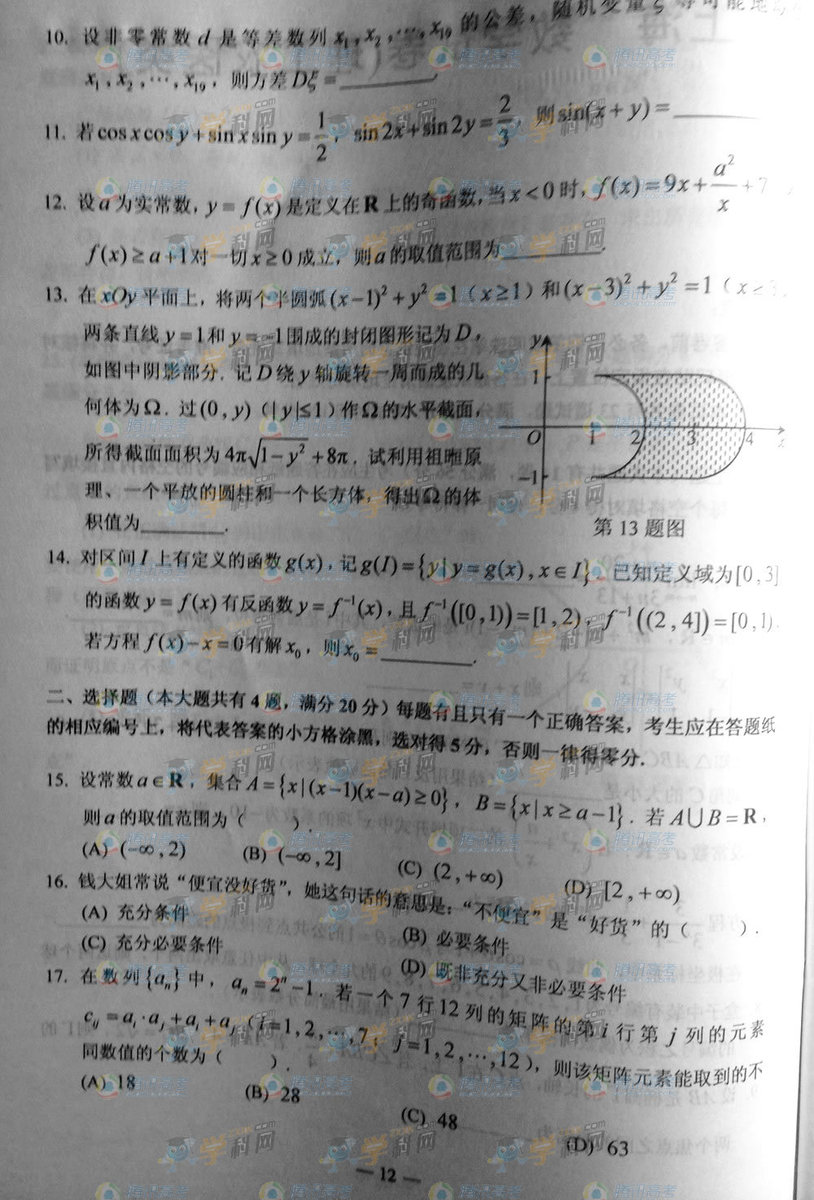 10. 设非零常数 d 是等差数列 x₁, x₂, ⋯, x₁₉ 的公差, 随机变量 ξ 等可能地
x₁, x₂, ⋯, x₁₉, 则方差 Dξ = ________.
11. 若 cos x cos y + sin x sin y = 1/2, sin 2x + sin 2y = 2/3, 则 sin(x + y) = ________
12. 设 a 为实常数, y = f(x) 是定义在 R 上的奇函数, 当 x < 0 时, f(x) = 9x + a²/x + 7
f(x) ≥ a + 1 对一切 x ≥ 0 成立, 则 a 的取值范围为 ________.
13. 在 xOy 平面上, 将两个半圆弧 (x−1)² + y² = 1 (x ≥ 1) 和 (x−3)² + y² = 1 (x ≤ 3
两条直线 y = 1 和 y = −1 围成的封闭图形记为 D,
如图中阴影部分. 记 D 绕 y 轴旋转一周而成的几
何体为 Ω. 过 (0, y) (|y| ≤ 1) 作 Ω 的水平截面,
所得截面面积为 4π√(1−y²) + 8π. 试利用祖暅原
理、一个平放的圆柱和一个长方体, 得出 Ω 的体
积值为 ________.
y
1
O 1 2 3 4 x
−1
第 13 题图
14. 对区间 I 上有定义的函数 g(x), 记 g(I) = {y | y = g(x), x ∈ I}. 已知定义域为 [0, 3]
的函数 y = f(x) 有反函数 y = f⁻¹(x), 且 f⁻¹([0, 1)) = [1, 2), f⁻¹((2, 4]) = [0, 1).
若方程 f(x) − x = 0 有解 x₀, 则 x₀ = ________.
二、选择题 (本大题共有 4 题, 满分 20 分) 每题有且只有一个正确答案, 考生应在答题纸
的相应编号上, 将代表答案的小方格涂黑, 选对得 5 分, 否则一律得零分.
15. 设常数 a ∈ R, 集合 A = {x | (x−1)(x−a) ≥ 0}, B = {x | x ≥ a−1}. 若 A ∪ B = R,
则 a 的取值范围为 (    ).
(A) (−∞, 2) (B) (−∞, 2] (C) (2, +∞) (D) [2, +∞)
16. 钱大姐常说“便宜没好货”, 她这句话的意思是: “不便宜”是“好货”的 (    ).
(A) 充分条件 (B) 必要条件
(C) 充分必要条件 (D) 既非充分又非必要条件
17. 在数列 {aₙ} 中, aₙ = 2ⁿ − 1. 若一个 7 行 12 列的矩阵的第 i 行第 j 列的元素
cᵢⱼ = aᵢ · aⱼ + aᵢ + aⱼ (i = 1, 2, ⋯, 7; j = 1, 2, ⋯, 12), 则该矩阵元素能取到的不
同数值的个数为 (    ).
(A) 18 (B) 28 (C) 48 (D) 63
— 12 —